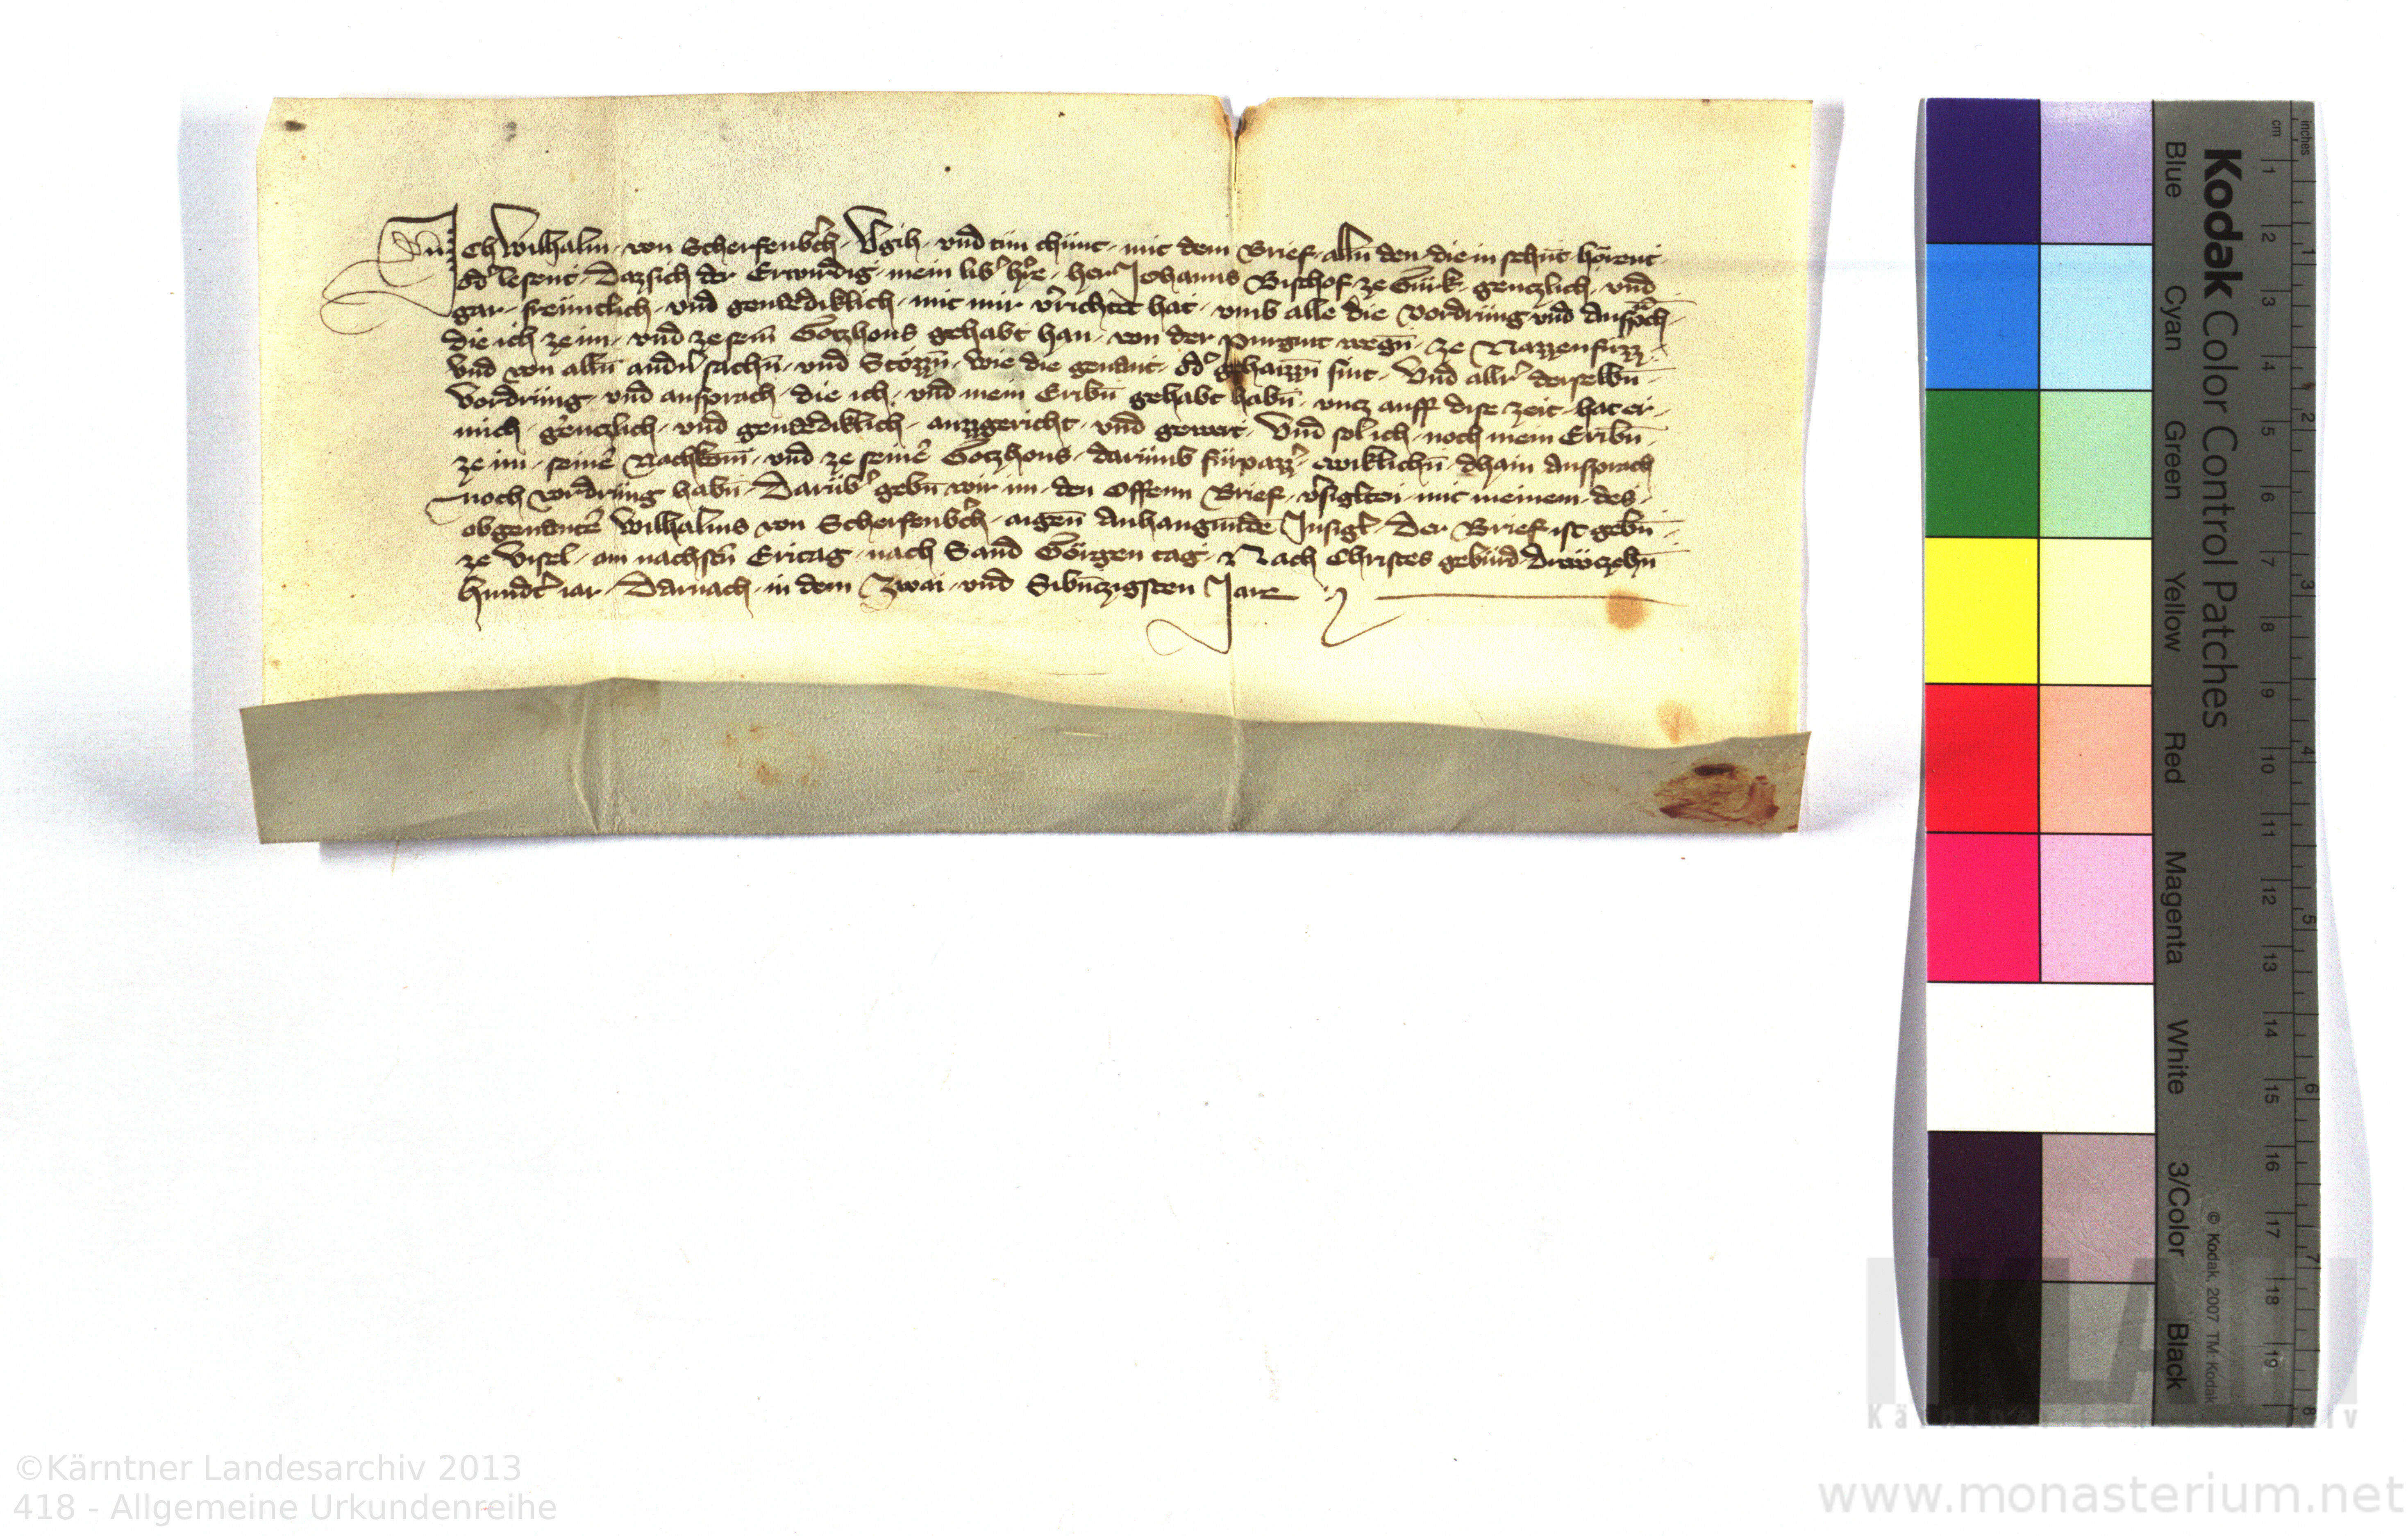 Ich Wilhalm von Scherfenbͤch Vgih vnd tůn chünt mit dem Brief alln̄ den die in sehn̄t hörent
od' lesent Daz sich der Erwirdig mein lib' h're her Johanns Bischof ze Gürk gentzlich vnd
gar freüntlich vnd genedikleich mit mir v'richtet hat vmb alle die vordrüng vnd Anspͣch
die ich ze im vnd ze sein̄ Gotzhous gehabt han von der Purgut wegn̄ ze Nazzenfuzz
Vnd von alln̄ andn̄ sachn̄ vnd Stözzn̄ wie die genant od' gehaizzn̄ sint Vnd all'r derselbn̄
Vordrüng vnd ansprach die ich vnd mein Eribn̄ gehabt habn̄ vntz auff dise zeit hat er
mich gentzlich vnd genediklich auzzgericht vnd gewert Vnd sol ich noch mein Eribn̄
ze im seinē Nachkom̄ vnd ze seinē Gotzhous darümb fürpazz' ewiklichn̄ dhain Ansprach
noch vordrüng habn̄ Darüb' gebn̄ wir im den Offenn Brief v'sigltn mit meinem des
obgenantē Wilhalms von Scherfenb'ch aigen̄ Anhangundē Insigl Der Brief ist gebn̄
ze Visel am nachstn̄ Eritag nach Sand Görgen tag Nach Christes gebürd Drewtzehn̄
hundt' iar Darnach in dem Zwai vnd Sibn̄tzigsten Jare
Kodak Color Control Patches
Blue Cyan Green Yellow Red Magenta White 3/Color Black
© Kodak, 2007 TM: Kodak
cm 1 2 3 4 5 6 7 8 9 10 11 12 13 14 15 16 17 18 19
inches 1 2 3 4 5 6 7 8
KLA
Kärntner Landesarchiv
©Kärntner Landesarchiv 2013
418 - Allgemeine Urkundenreihe
www.monasterium.net